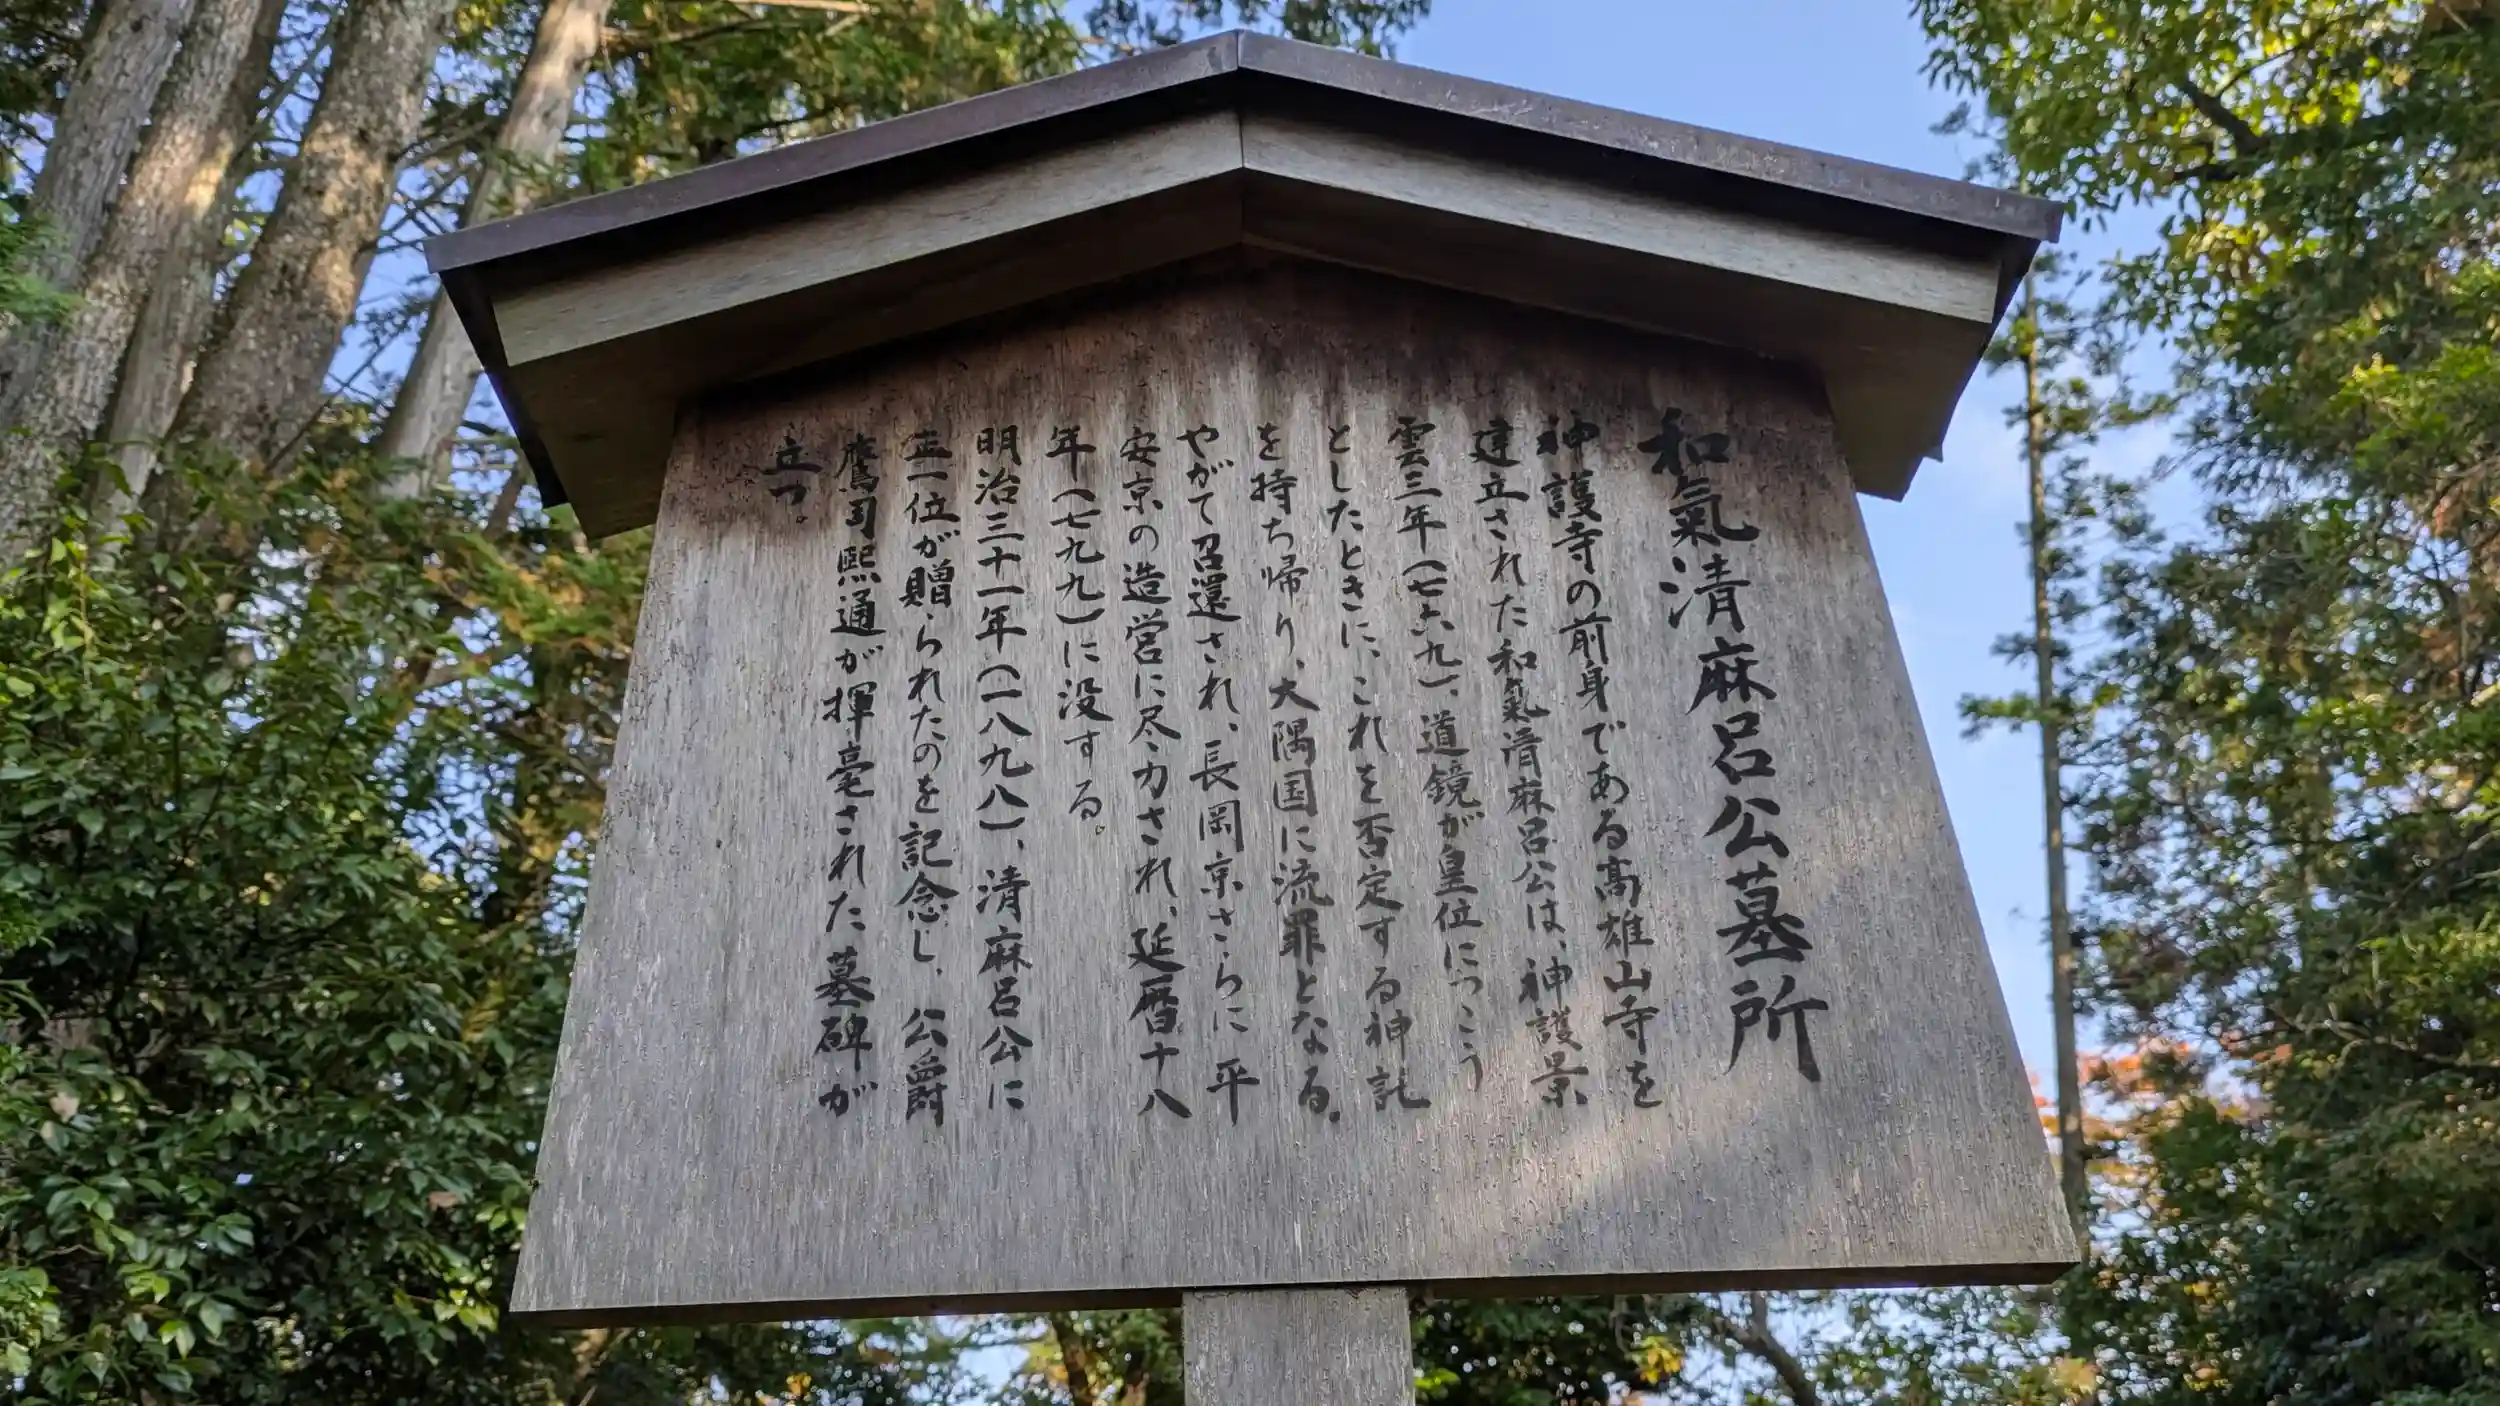 和氣清麻呂公墓所
神護寺の前身である高雄山寺を
建立された和氣清麻呂公は、神護景
雲三年(七六九)、道鏡が皇位につこう
としたときに、これを否定する神託
を持ち帰り、大隅国に流罪となる。
やがて召還され、長岡京さらに平
安京の造営に尽力され、延暦十八
年(七九九)に没する。
明治三十一年(一八九八)、清麻呂公に
正一位が贈られたのを記念し、公爵
鷹司熙通が揮毫された墓碑が
立つ。